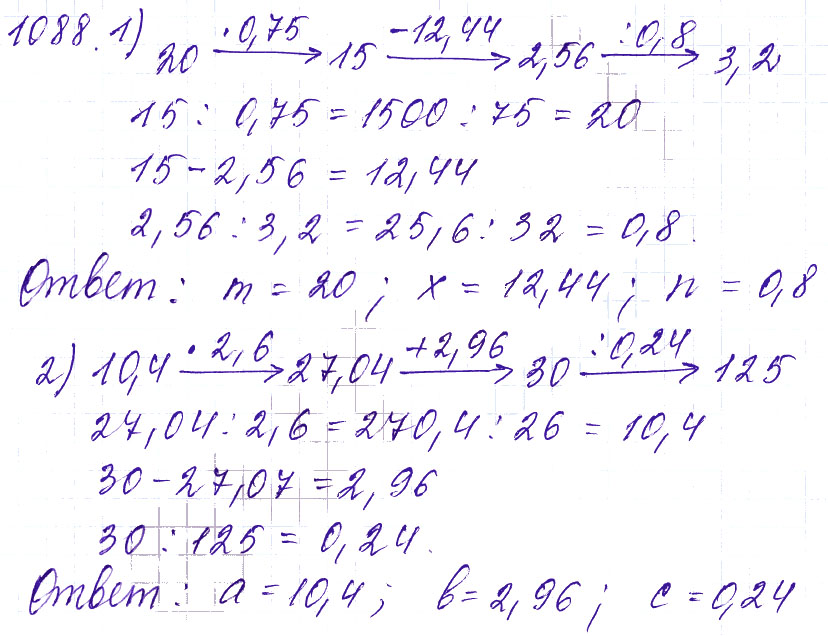 1088. 1) 20 ·0,75→ 15 −12,44→ 2,56 :0,8→ 3,2
15 : 0,75 = 1500 : 75 = 20
15 − 2,56 = 12,44
2,56 : 3,2 = 25,6 : 32 = 0,8.
Ответ: m = 20; x = 12,44; n = 0,8
2) 10,4 ·2,6→ 27,04 +2,96→ 30 :0,24→ 125
27,04 : 2,6 = 270,4 : 26 = 10,4
30 − 27,07 = 2,96
30 : 125 = 0,24.
Ответ: a = 10,4; b = 2,96; c = 0,24